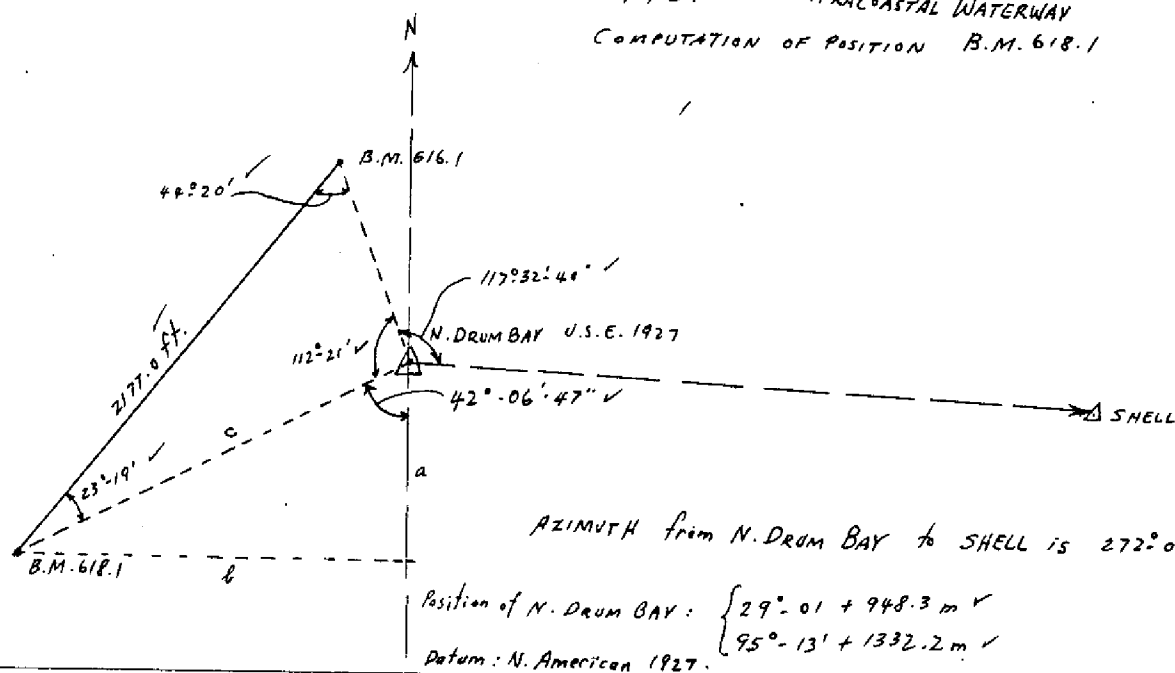 WATERWAY
COMPUTATION OF POSITION B.M. 618.1
N
B.M. 616.1
44°20'
117°32'40"
N. DRUM BAY U.S.E. 1927
2177.0 ft.
112°-21'
42°-06'-47"
SHELL
c
a
23°-19'
AZIMUTH from N. DRUM BAY to SHELL is 272°0
B.M. 618.1
b
Position of N. DRUM BAY: { 29°-01 + 948.3 m
95°-13' + 1332.2 m
Datum: N. American 1927.